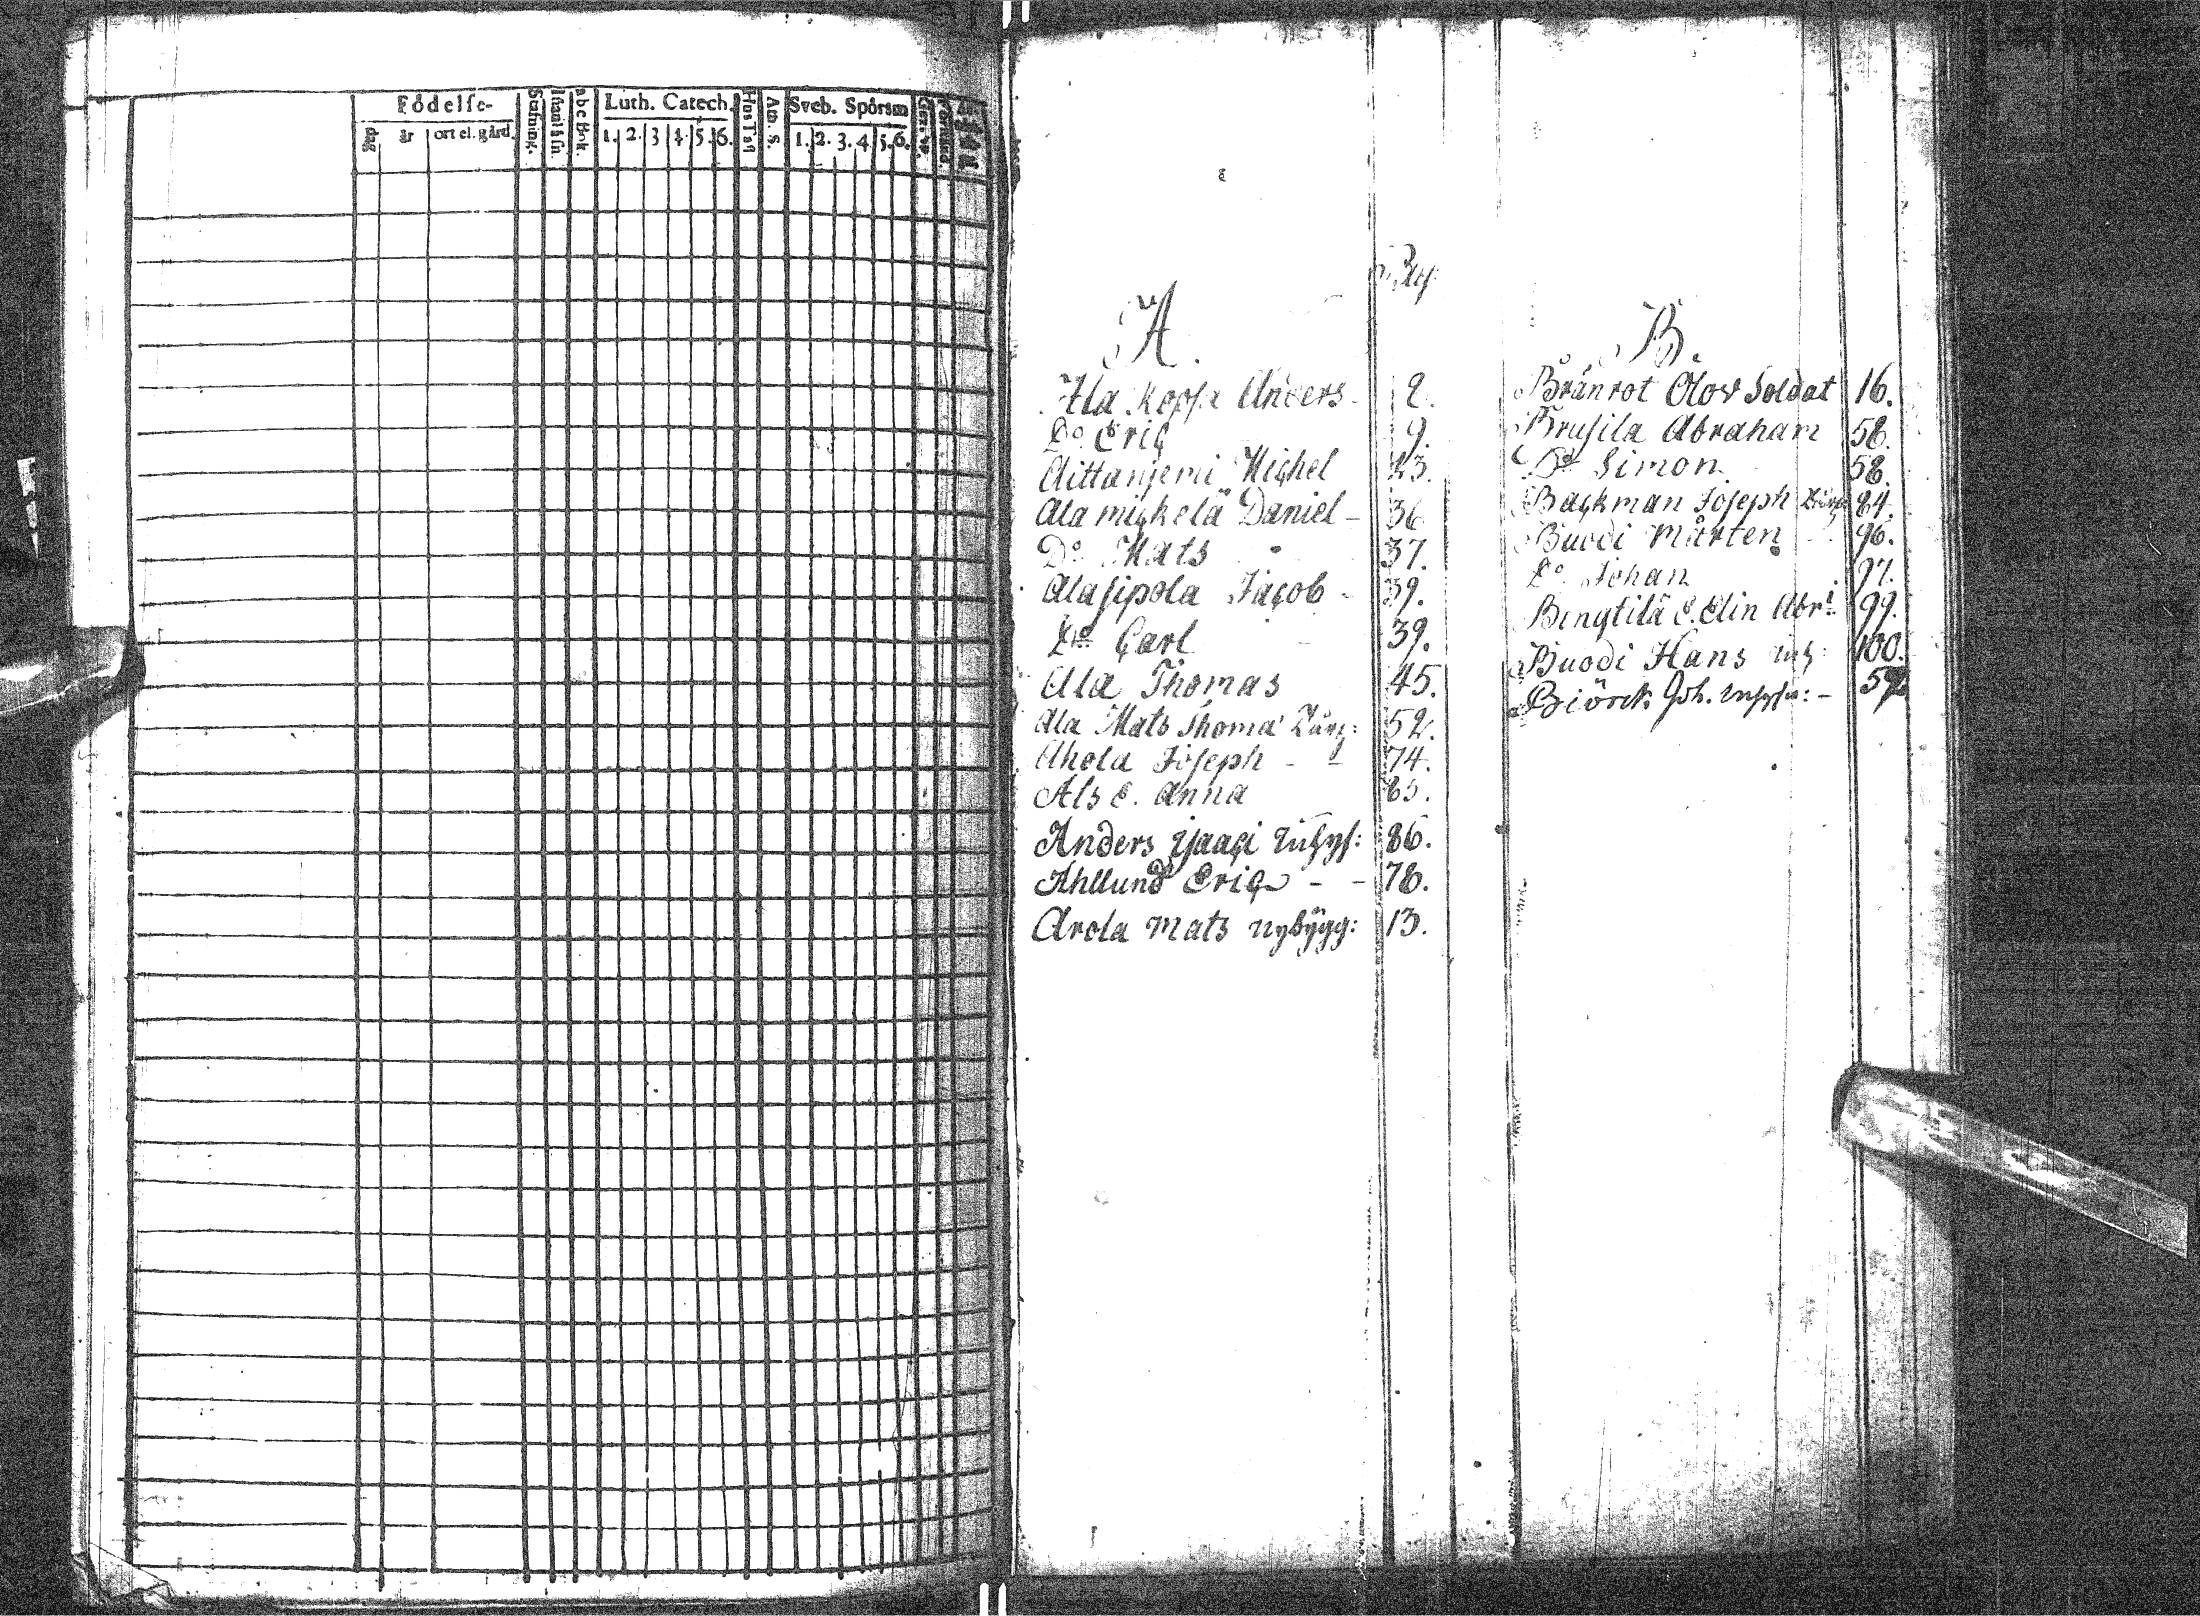 Födelse-
dag
år
ort el. gård.
Stafning.
abc Bok.
Luth. Catech.
1. 2. 3 4. 5. 6.
Ath. S.
Sveb. Spörsm
1. 2. 3. 4. 5. 6.
Pag
A.
Ala Kopsa Anders 2.
Do Eric 9.
Aittaniemi Michel 23.
Ala mickelä Daniel - 36
Do Mats 37.
Alasipola Jacob - 39.
Do Carl 39.
Ala Thomas 45.
Ala Mats Thoma 52.
Ahola Joseph - - 74.
Als E. Anna 85.
Anders 86.
Ahllund Eric - - 78.
Arola Mats nybÿgg: 13.
B.
Brånrot Olov Soldat 16.
Brusila Abraham 58.
Do Simon 58.
Backman Joseph 84.
Buodi Mårten 96.
Do Johan 97.
Bengtilä E. Elin Abr: 99.
Buodi Hans 100.
Biörck Joh. 59